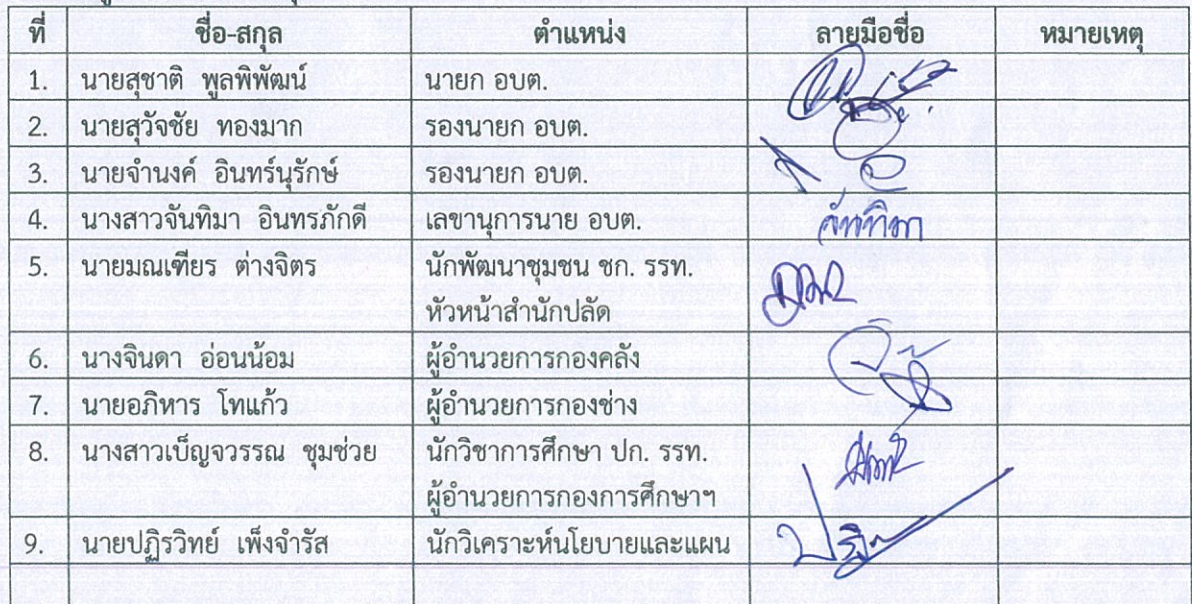 ที่ ชื่อ-สกุล ตำแหน่ง ลายมือชื่อ หมายเหตุ
1. นายสุชาติ พูลพิพัฒน์ นายก อบต.
2. นายสุวัจชัย ทองมาก รองนายก อบต.
3. นายจำนงค์ อินทร์นุรักษ์ รองนายก อบต.
4. นางสาวจันทิมา อินทรภักดี เลขานุการนาย อบต. จันทิมา
5. นายมณเฑียร ต่างจิตร นักพัฒนาชุมชน ชก. รรท.
หัวหน้าสำนักปลัด
6. นางจินดา ออนน้อม ผู้อำนวยการกองคลัง
7. นายอภิหาร โทแก้ว ผู้อำนวยการกองช่าง
8. นางสาวเบ็ญจวรรณ ชุมช่วย นักวิชาการศึกษา ปก. รรท.
ผู้อำนวยการกองการศึกษาฯ
9. นายปฏิรวิทย์ เพ็งจำรัส นักวิเคราะห์นโยบายและแผน